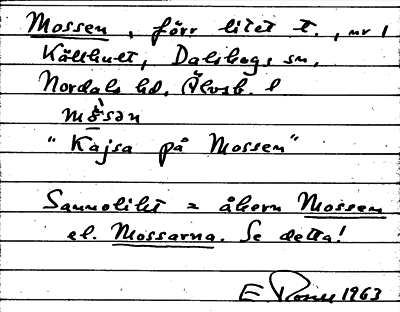 Mossen, förr litet t., nr 1
Källhult, Dalskogs sn,
Nordals hd, Älvsb. l
mòsən
"Kajsa på Mossen"
Sannolikt = åkern Mossen
el. Mossarna. Se detta!
E 1963